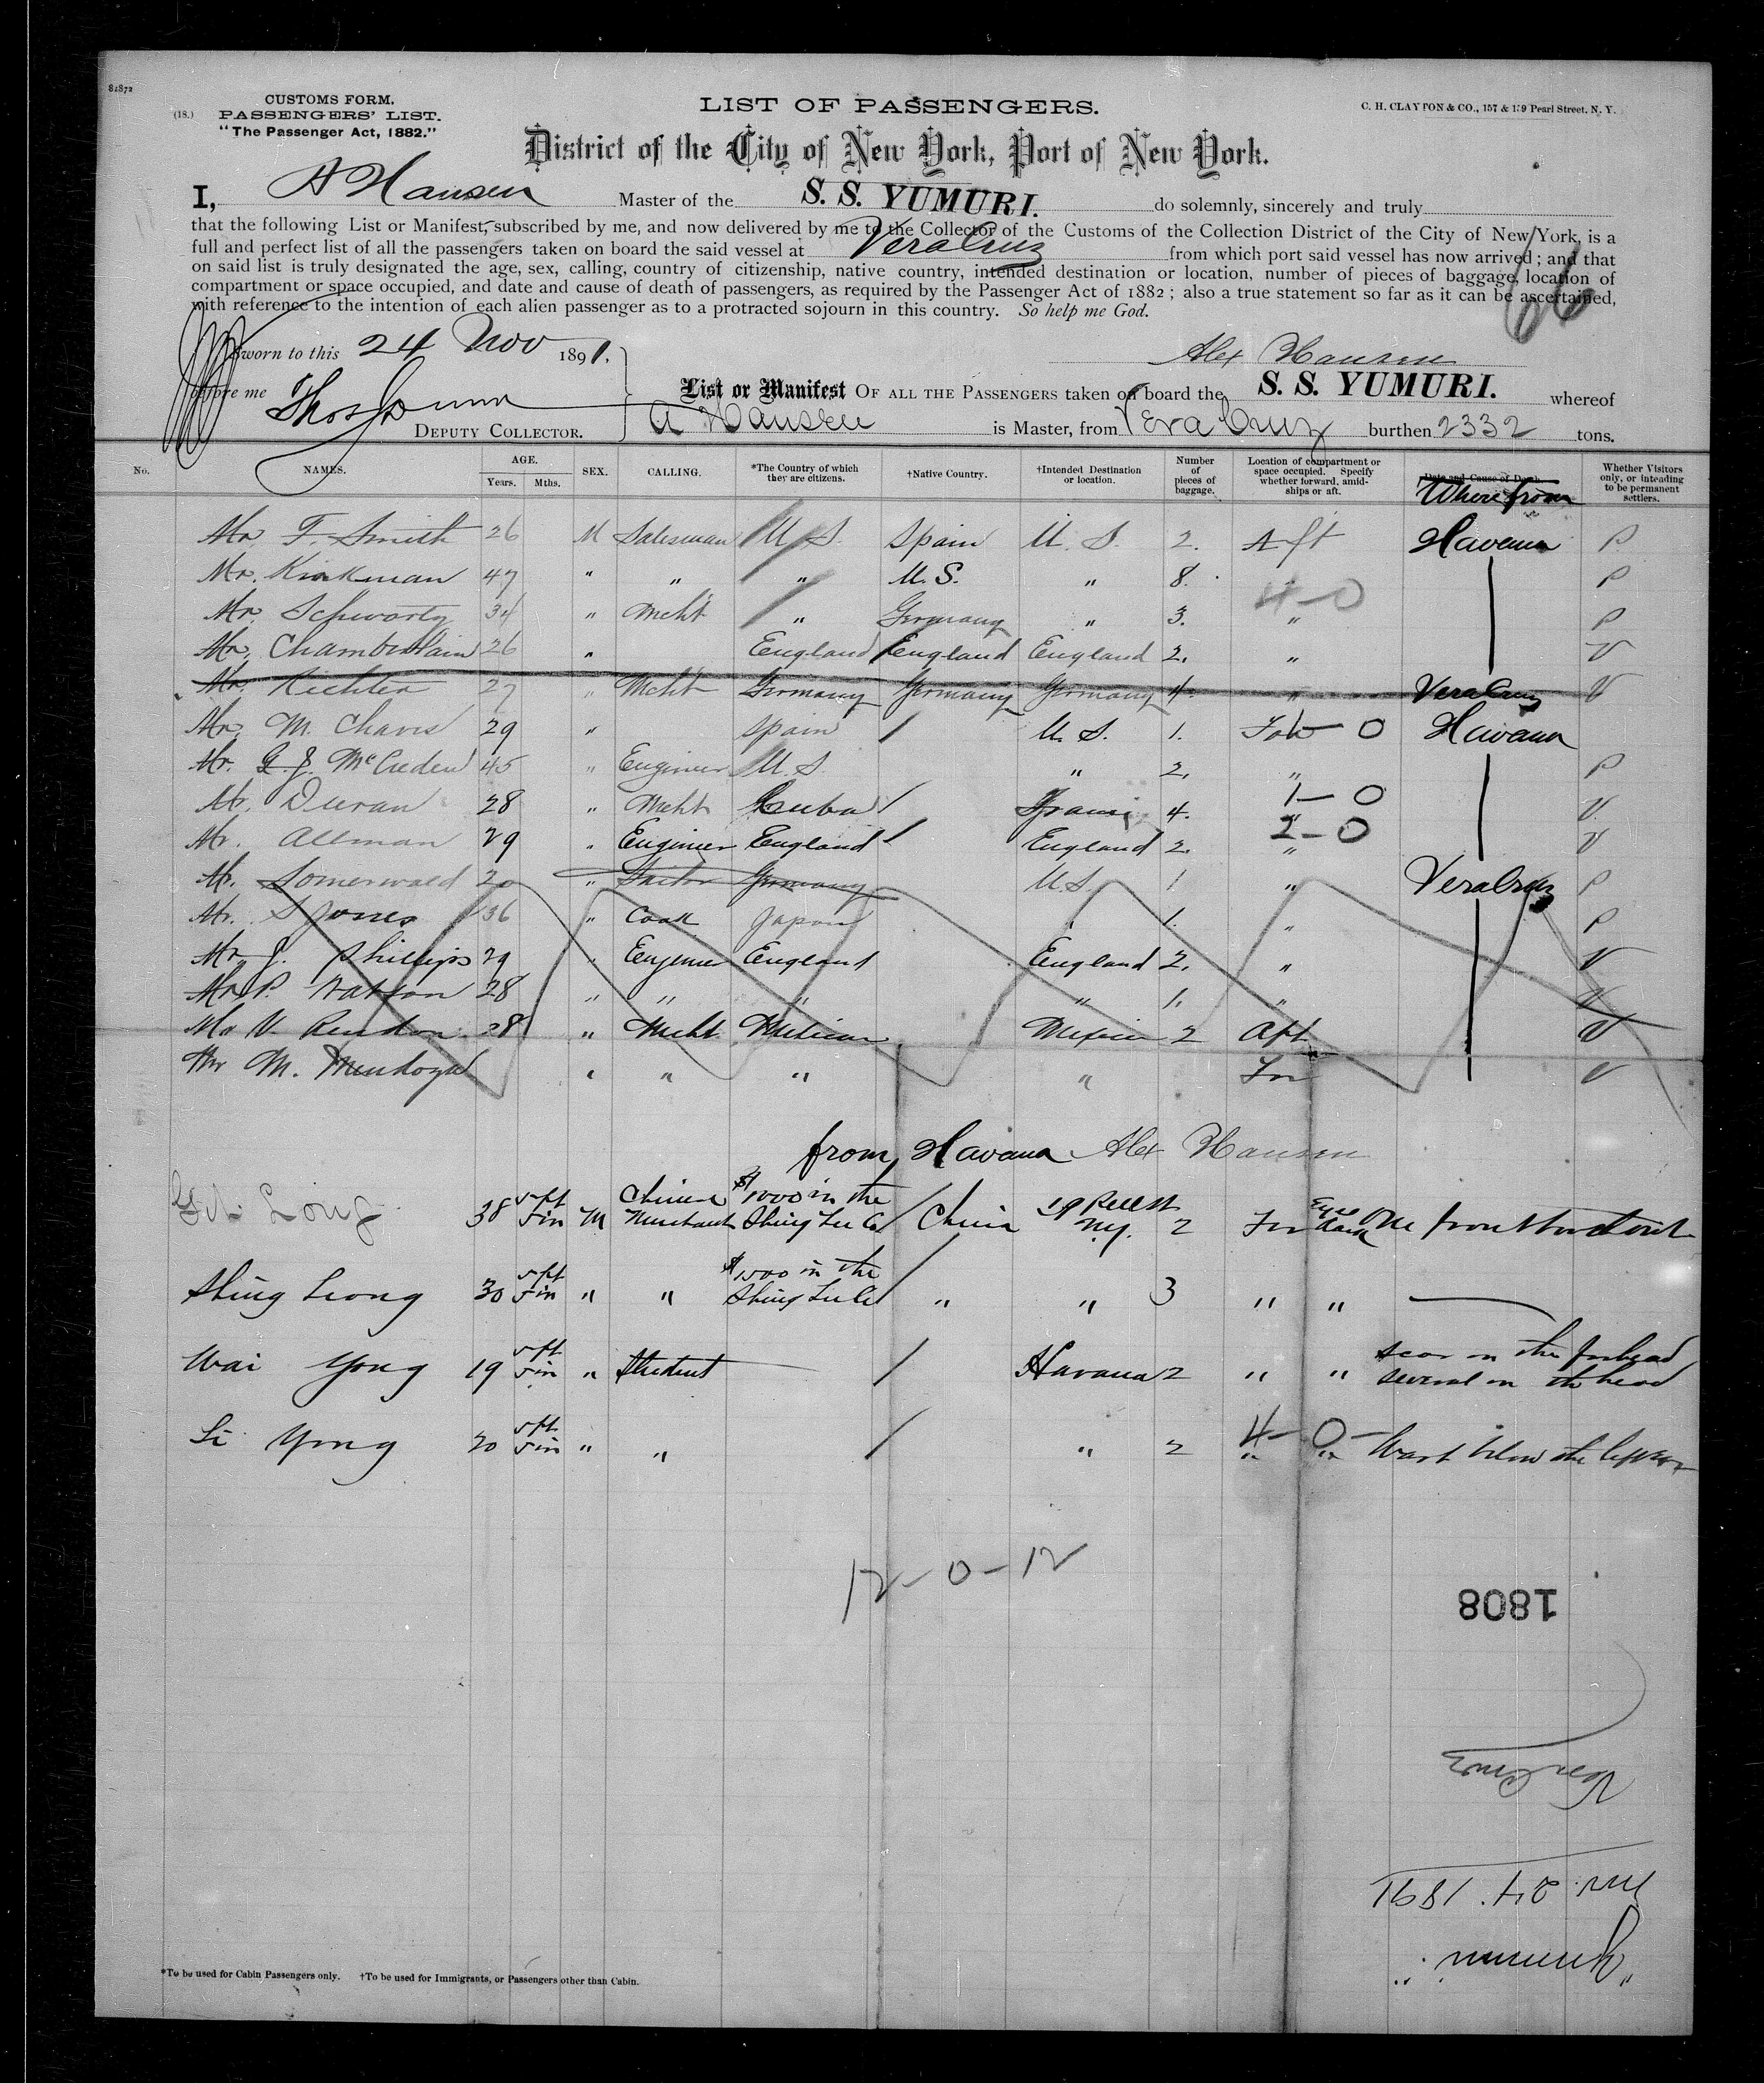 81872
CUSTOMS FORM.
(18.) PASSENGERS' LIST.
"The Passenger Act, 1882."
LIST OF PASSENGERS.
C. H. CLAYTON & CO., 157 & 159 Pearl Street, N. Y.
District of the City of New York, Port of New York.
I, A Hansen Master of the S. S. YUMURI. do solemnly, sincerely and truly
that the following List or Manifest, subscribed by me, and now delivered by me to the Collector of the Customs of the Collection District of the City of New York, is a
full and perfect list of all the passengers taken on board the said vessel at Vera Cruz from which port said vessel has now arrived; and that
on said list is truly designated the age, sex, calling, country of citizenship, native country, intended destination or location, number of pieces of baggage, location of
compartment or space occupied, and date and cause of death of passengers, as required by the Passenger Act of 1882; also a true statement so far as it can be ascertained,
with reference to the intention of each alien passenger as to a protracted sojourn in this country. So help me God.
66
Sworn to this 24 Nov 1891.
Alex Hansen
before me
List or Manifest OF ALL THE PASSENGERS taken on board the S. S. YUMURI. whereof
DEPUTY COLLECTOR. A Hansen is Master, from Vera Cruz burthen 2332 tons.
No. NAMES. AGE. Years. Mths. SEX. CALLING. *The Country of which they are citizens. †Native Country. †Intended Destination or location. Number of pieces of baggage. Location of compartment or space occupied. Specify whether forward, amidships or aft. Date and Cause of Death. Where from Whether Visitors only, or intending to be permanent settlers.
Mr F. Smith 26 M Salesman U. S. Spain U. S. 2. Aft Havana P
Mr. Kirkman 47 " " " U. S. " 8. P
4-0
Mr. Schwartz 34 " Mcht " Germany " 3. " P
Mr. Chamberlain 26 " England England England 2. " V
Mr. Richter 27 " Mcht Germany Germany Germany 4. " Vera Cruz V
Mr. M. Chaves 29 " Spain / U. S. 1. For 0 Havana
Mr. G. J. McCreden 45 " Engineer U. S. " 2. " P
1-0
Mr. Duran 28 " Mcht Cuba / 4. " V
2-0
Mr. Allman 29 " Engineer England / England 2. " V
Mr. Somerwald " Sailor Germany U. S. 1 " Vera Cruz P
Mr. S Jones 36 " Cook Japan " 1. " P
Mr J. Phillips 29 " Engineer England England 2. " V
Mr P. Watson 28 " " " " 1. " V
Mr V. Rendon 28 " Mcht Mexican Mexico 2 Aft V
Mr M. " " " " For V
from Havana Alex Hansen
Long 38 5 ft 5 in M Chinese Merchant $1000 in the Shing Lee Co / China 19 Pell St N.Y. 2 For Eyes dark One front tooth out
Shing Leong 30 5 ft 5 in " " $1500 in the Shing Lee Co / " " 3 " "
Wai Yong 19 5 ft 5 in " Student / Havana 2 " " scar on the forhead several on the head
Li Yong 20 5 ft 5 in " " / " 2 " " Wart below the left ear
4-0-
12-0-12
1808
Vera Cruz
Nov. 24. 1891
"Yumuri"
*To be used for Cabin Passengers only. †To be used for Immigrants, or Passengers other than Cabin.